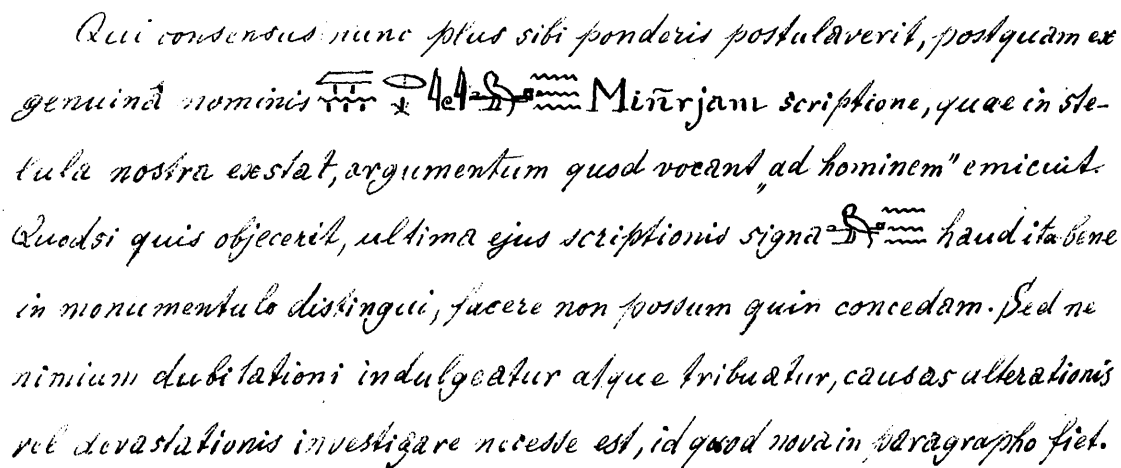 Qui consensus nunc plus sibi ponderis postulaverit, postquam ex
genuinâ nominis Miñrjam scriptione, quae in ste-
lula nostra exstat, argumentum quod vocant „ad hominem” emicuit.
Quodsi quis objecerit, ultima ejus scriptionis signa haud ita bene
in monumentulo distingui, facere non possum quin concedam. Sed ne
nimium dubitationi indulgeatur atque tribuatur, causas alterationis
vel devastationis investigare necesse est, id quod nova in paragrapho fiet.